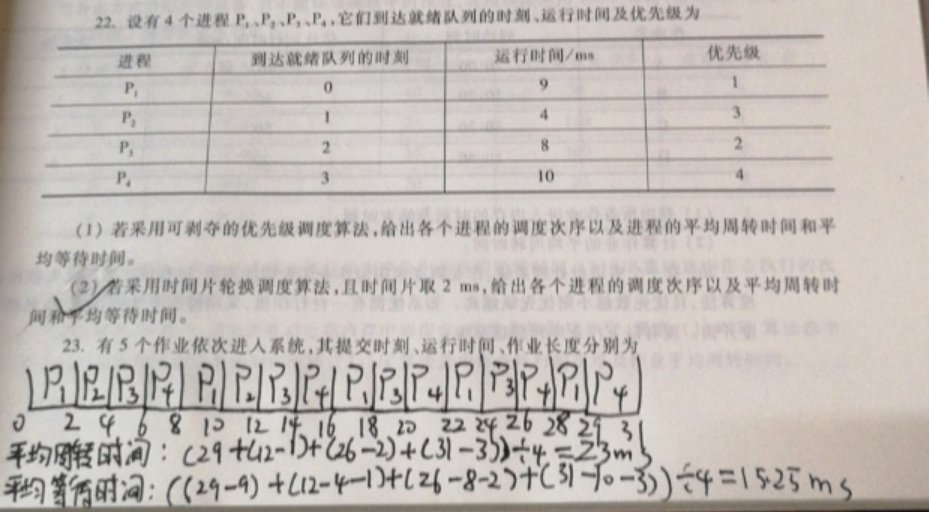 22. 设有 4 个进程 P₁、P₂、P₃、P₄,它们到达就绪队列的时刻、运行时间及优先级为
进程 到达就绪队列的时刻 运行时间/ms 优先级
P₁ 0 9 1
P₂ 1 4 3
P₃ 2 8 2
P₄ 3 10 4
(1) 若采用可剥夺的优先级调度算法,给出各个进程的调度次序以及进程的平均周转时间和平
均等待时间。
(2) 若采用时间片轮换调度算法,且时间片取 2 ms,给出各个进程的调度次序以及平均周转时
间和平均等待时间。
23. 有 5 个作业依次进入系统,其提交时刻、运行时间、作业长度分别为
|P₁|P₂|P₃|P₄|P₁|P₂|P₃|P₄|P₁|P₃|P₄|P₁|P₃|P₄|P₁|P₄|
0 2 4 6 8 10 12 14 16 18 20 22 24 26 28 29 31
平均周转时间: (29+(12-1)+(26-2)+(31-3))÷4=23ms
平均等待时间: ((29-9)+(12-4-1)+(26-8-2)+(31-10-3))÷4=15.25ms